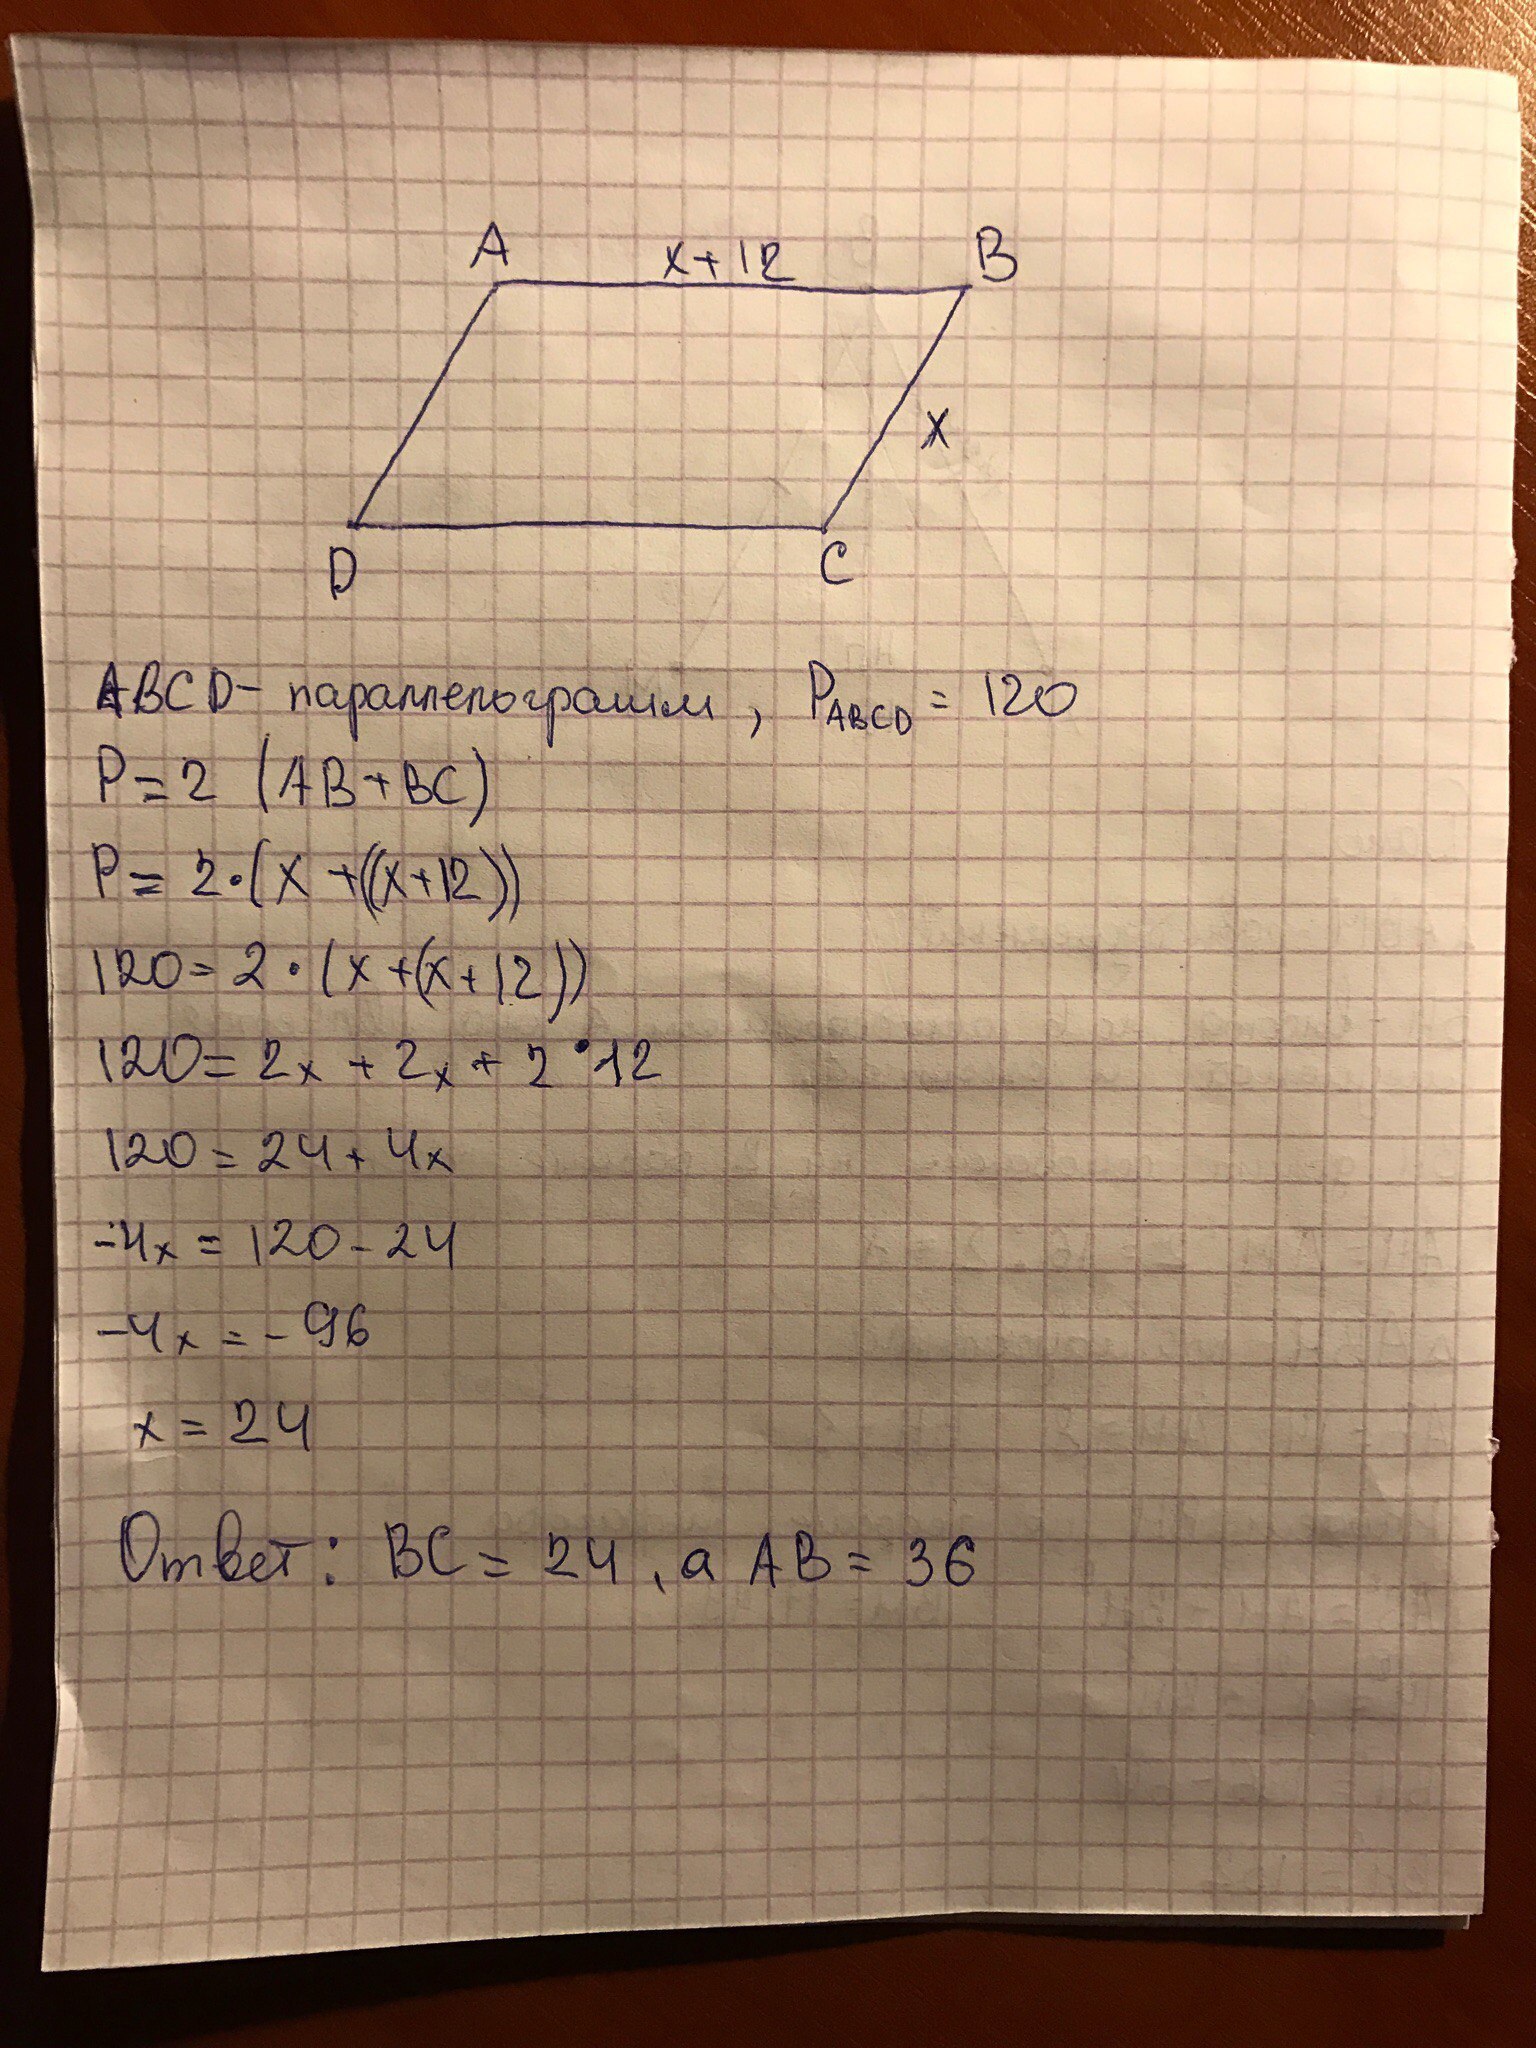 A x+12 B
x
D C
ABCD - параллелограмм, PABCD = 120
P = 2 (AB + BC)
P = 2 • (x + ((x+12))
120 = 2 • (x + (x + 12))
120 = 2x + 2x + 2 • 12
120 = 24 + 4x
-4x = 120 - 24
-4x = - 96
x = 24
Ответ: BC = 24, а AB = 36